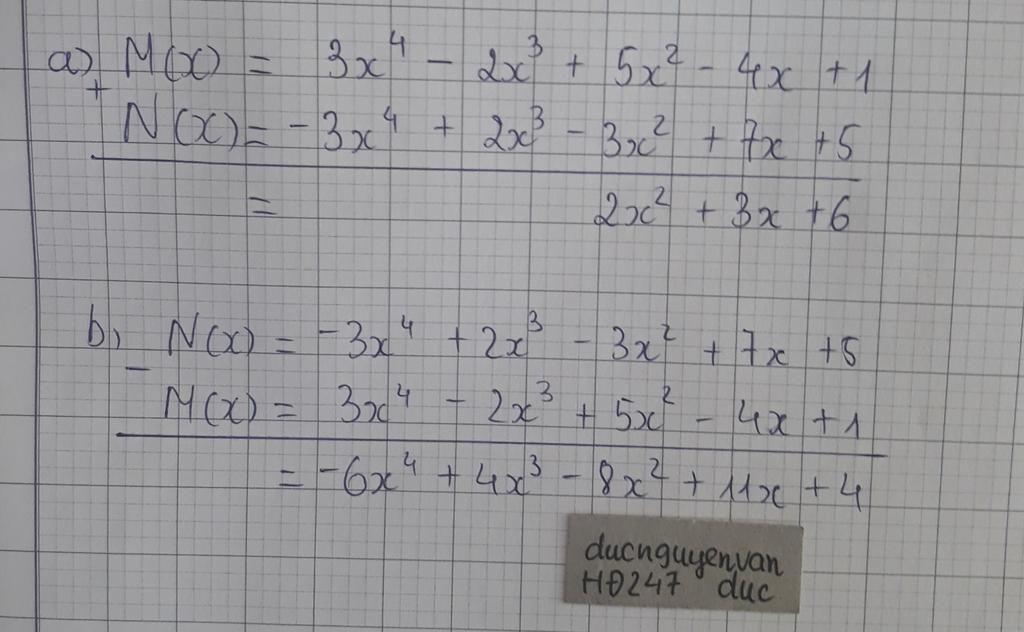 a) M(x) = 3x⁴ - 2x³ + 5x² - 4x + 1
+
N(x) = -3x⁴ + 2x³ - 3x² + 7x + 5
= 2x² + 3x + 6
b) N(x) = -3x⁴ + 2x³ - 3x² + 7x + 5
-
M(x) = 3x⁴ - 2x³ + 5x² - 4x + 1
= -6x⁴ + 4x³ - 8x² + 11x + 4
ducnguyenvan
HĐ247 duc